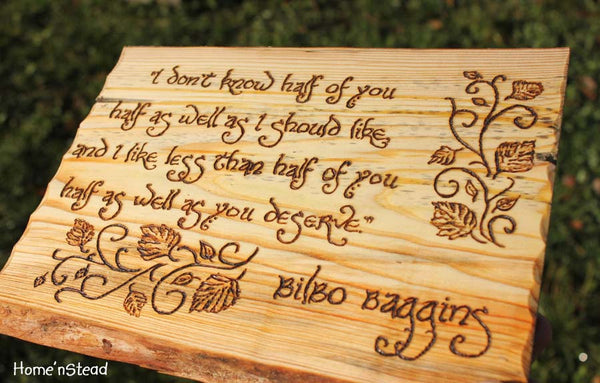 "I don't know half of you
half as well as I should like,
and I like less than half of you
half as well as you deserve."
Bilbo Baggins
Home'nStead